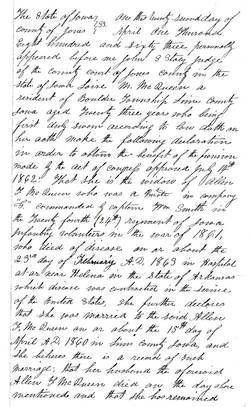 The State of Iowa } On this twenty second day of
County of Jones } SS April One Thousand
Eight hundred and sixty three personally
appeared before me John S Stacy Judge
of the county court of Jones county in the
State of Iowa M. McQueen a
resident of Boulder Township Linn county
Iowa aged Twenty three years who being
first duly sworn according to law doth on
her oath make the following declaration
in order to obtain the benefit of the pension
made by the act of congress approved July 14th
1862. That she is the widow of Allen
F. McQueen who was a Private in company
commanded by captain Wm Smith in
the Twenty fourth (24th) regiment of Iowa
Infantry volunteers in the war of 1861,
who died of disease on or about the
23rd day of February A.D. 1863 in Hospital
at or near Helena in the State of Arkansas
which disease was contracted in the service
of the United States, she further declares
that she was married to the said Allen
F. McQueen on or about the 15th day of
April A.D. 1860 in Linn county Iowa and
she believes there is a record of such
marriage; that her husband the aforesaid
Allen F McQueen died on the day above
mentioned and that she has remained